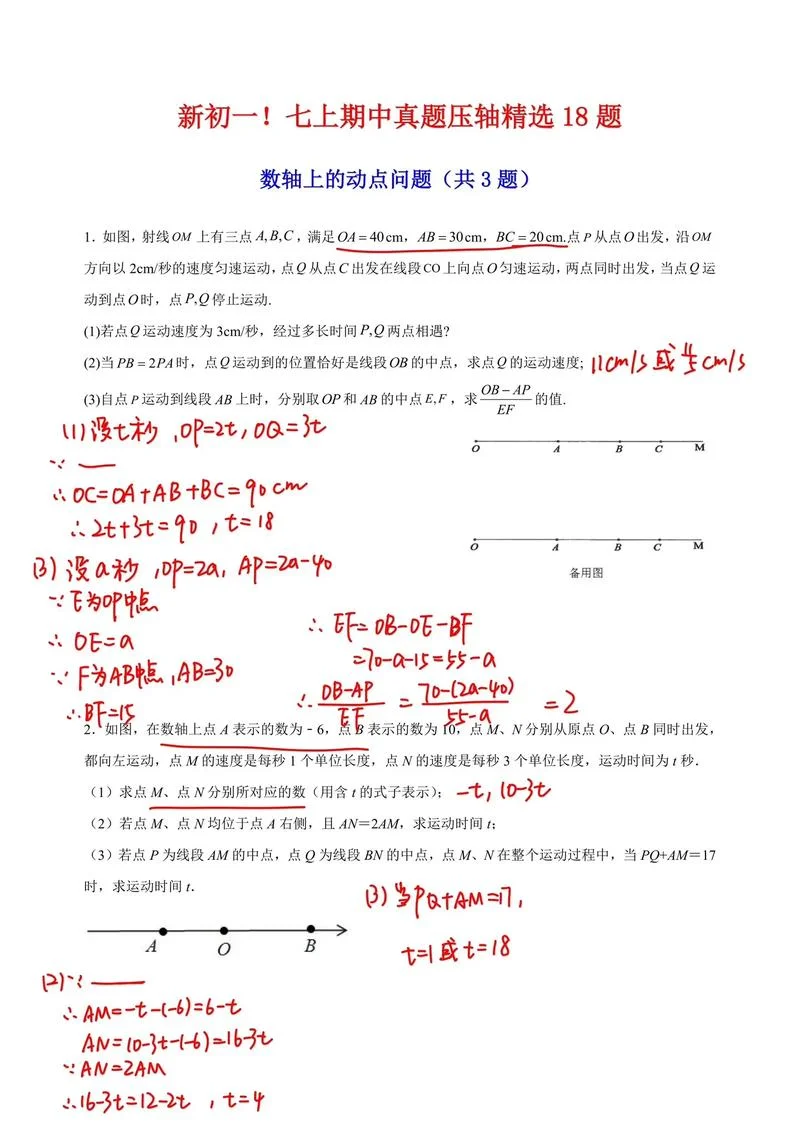 新初一！七上期中真题压轴精选 18 题
数轴上的动点问题（共 3 题）
1．如图，射线OM 上有三点A,B,C，满足OA＝40cm，AB＝30cm，BC＝20cm.点P从点O出发，沿OM
方向以2cm/秒的速度匀速运动，点Q从点C出发在线段CO上向点O匀速运动，两点同时出发，当点Q运
动到点O时，点P,Q停止运动.
(1)若点Q运动速度为3cm/秒，经过多长时间P,Q两点相遇?
(2)当PB＝2PA时，点Q运动到的位置恰好是线段OB的中点，求点Q的运动速度; 11cm/s 或 4/5cm/s
(3)自点P运动到线段AB上时，分别取OP和AB的中点E,F，求 (OB－AP)/EF 的值.
(1) 设t秒，OP=2t，OQ=3t
∵ —
∴ OC=OA+AB+BC=90cm
∴ 2t+3t=90，t=18
O A B C M
O A B C M
备用图
(3) 设a秒，OP=2a，AP=2a-40
∵E为OP中点
∴ OE=a
∵ F为AB中点，AB=30
∴BF=15
∴ EF=OB-OE-BF
=70-a-15=55-a
∴ (OB-AP)/EF = (70-(2a-40))/(55-a) =2
2．如图，在数轴上点 A 表示的数为﹣6，点 B 表示的数为 10，点 M、N 分别从原点 O、点 B 同时出发，
都向左运动，点 M 的速度是每秒 1 个单位长度，点 N 的速度是每秒 3 个单位长度，运动时间为 t 秒．
（1）求点 M、点 N 分别所对应的数（用含 t 的式子表示）； -t，10-3t
（2）若点 M、点 N 均位于点 A 右侧，且 AN＝2AM，求运动时间 t；
（3）若点 P 为线段 AM 的中点，点 Q 为线段 BN 的中点，点 M、N 在整个运动过程中，当 PQ+AM＝17
时，求运动时间 t．
(3) 当PQ+AM=17，
t=1或t=18
A O B
(2)∵ —
∴ AM=-t-(-6)=6-t
AN=10-3t-(-6)=16-3t
∵AN=2AM
∴16-3t=12-2t ，t=4